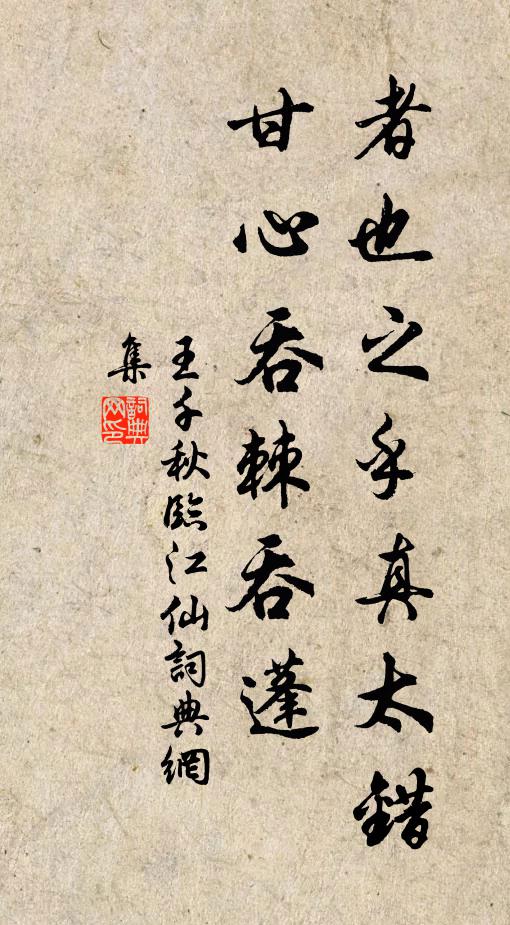 者也之乎真太錯
甘心吞棘吞蓬
王千秋臨江仙詞典網
集
詞典網印